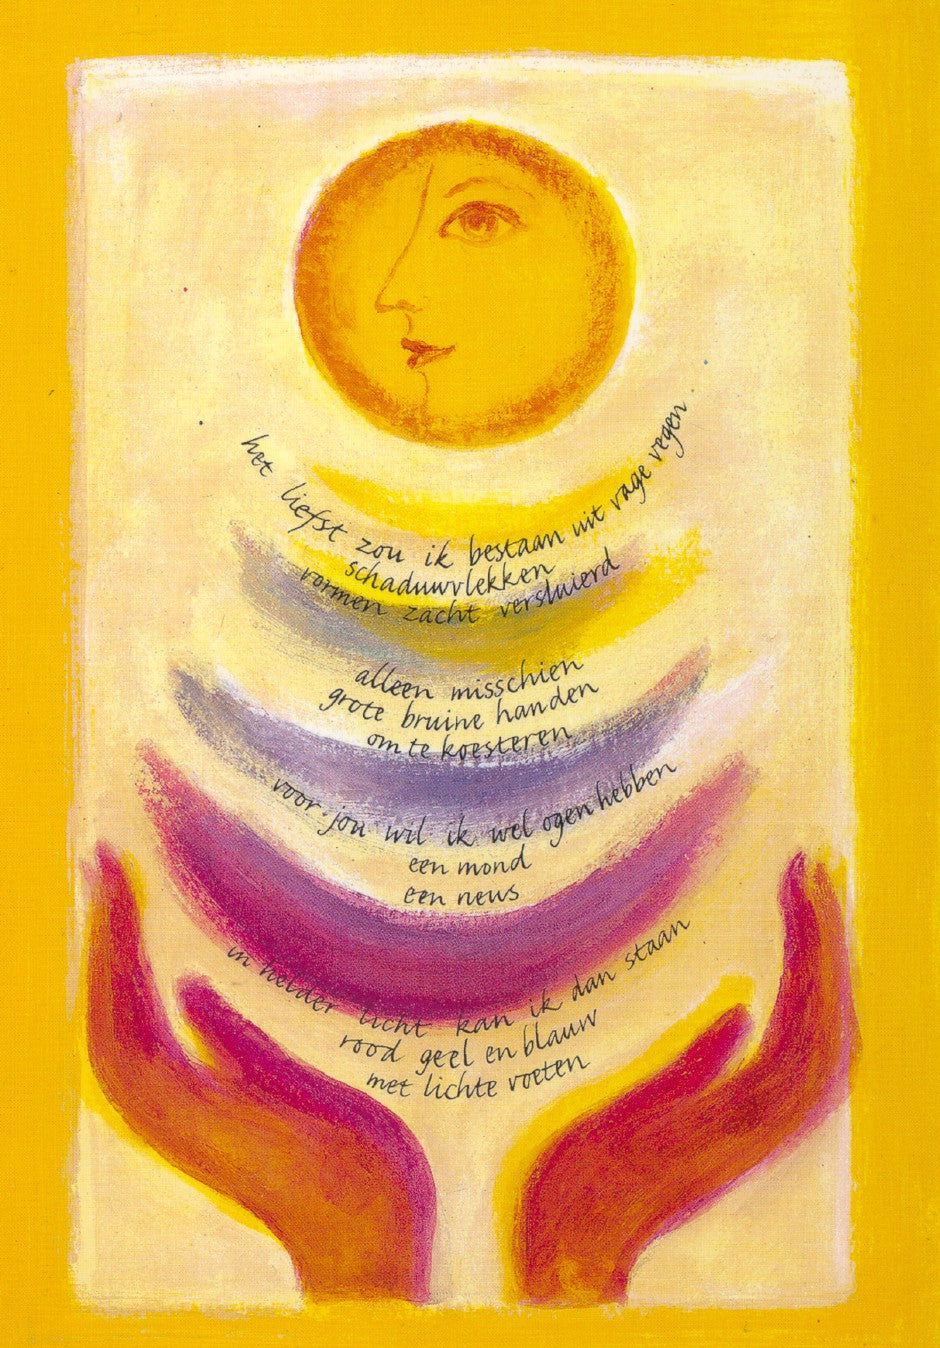 het liefst zou ik bestaan uit vage vegen
schaduwvlekken
vormen zacht versluierd
alleen misschien
grote bruine handen
om te koesteren
voor jou wil ik wel ogen hebben
een mond
een neus
in helder licht kan ik dan staan
rood geel en blauw
met lichte voeten